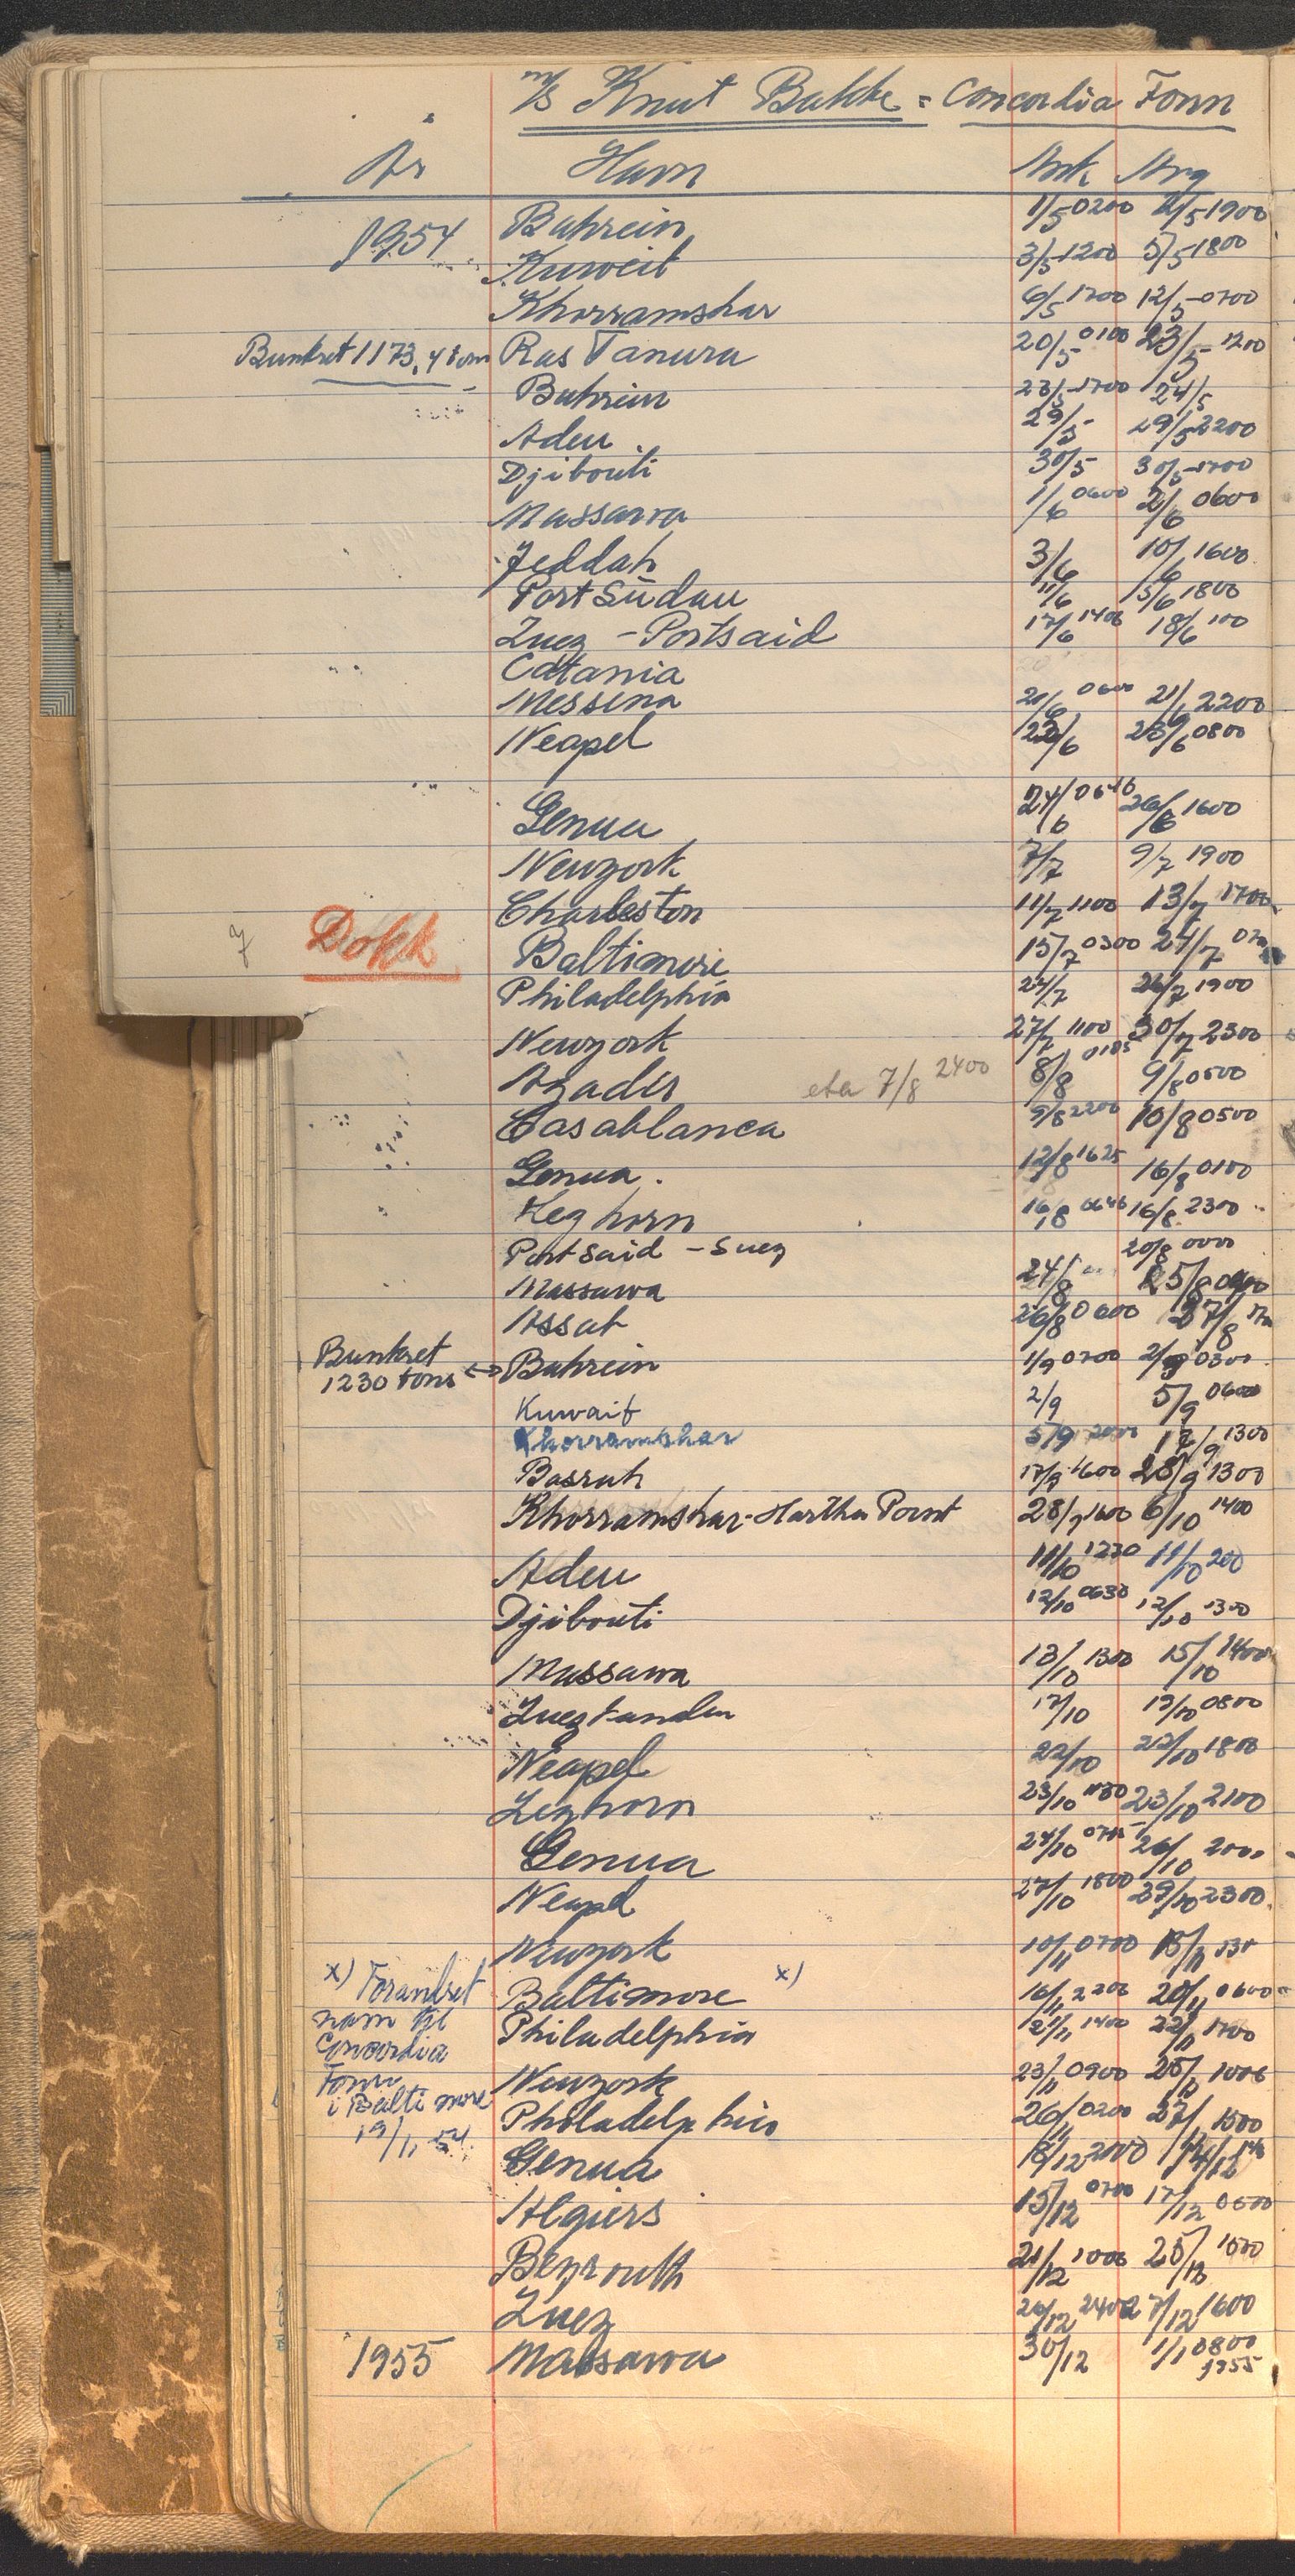 m/s Knut Bakke = Concordia Fonn
År Havn Ank Avg
1954 Bahrein 1/5 0200 2/5 1900
Kuweit 3/5 1200 5/5 1800
Khorramshar 6/5 1700 12/5 0700
Bunkret 1173,4 tom Ras Tanura 20/5 0100 23/5 1200
Bahrein 23/5 1700 24/5
Aden 29/5 29/5 2200
Djibouti 30/5 30/5 1700
Massawa 1/6 0600 2/6 0600
Jeddah 3/6 10/6 1600
Port Südan 11/6 15/6 1800
Zuez - Portsaid 17/6 1400 18/6 100
Catania
Messina 21/6 0600 21/6 2200
Neapel 22/6 23/6 0800
Genua 24/6 26/6 1600
Newyork 7/7 9/7 1900
Charleston 11/7 1100 13/7 1700
7 Dokk Baltimore 15/7 0300 24/7
Philadelphia 24/7 26/7 1900
Newyork 27/7 1100 30/7 2300
Agadir eta 7/8 2400 8/8 0105 9/8 0500
Casablanca 9/8 2200 10/8 0500
Genua. 12/8 1625 16/8 0100
Leghorn 16/8 0645 16/8 2300
Port Said - Suez 20/8 0000
Massawa 24/8 25/8
Assab 26/8 0600 27/8
Bunkret
1230 tons <-> Bahrein 1/9 0700 2/9 0300
Kuwait 2/9 5/9 0600
Khorramshar 5/9 2000 17/9 1300
Basrah 17/9 1600 28/9 1300
Khorramshar - Hartha Point 28/9 1600 6/10 1400
Aden 11/10 1230 11/10 200
Djibouti 12/10 0630 12/10 1300
Massawa 13/10 1300 15/10 1400
Zuezkanalen 17/10 0800
Neapel 22/10 22/10 1800
Leghorn 23/10 23/10 2100
Genua 24/10 0715 26/10 2000
Neapel 27/10 1800 29/10 2300
Newyork 10/11 0700
x) Forandret Baltimore x) 16/11 2200 20/11 0600
navn til Philadelphia 21/11 1400 22/11 1700
Concordia
Fonn Newyork 23/11 0900 25/11
i Baltimore Philadelphia 26/11 0200 27/11 1500
19/11 54. Genua
Algiers 15/12 0700 17/12 0600
Beyrouth 21/12 25/12 1500
Zuez 26/12 2400 27/12 1600
1955 Massawa 30/12 1/1 0800
1955